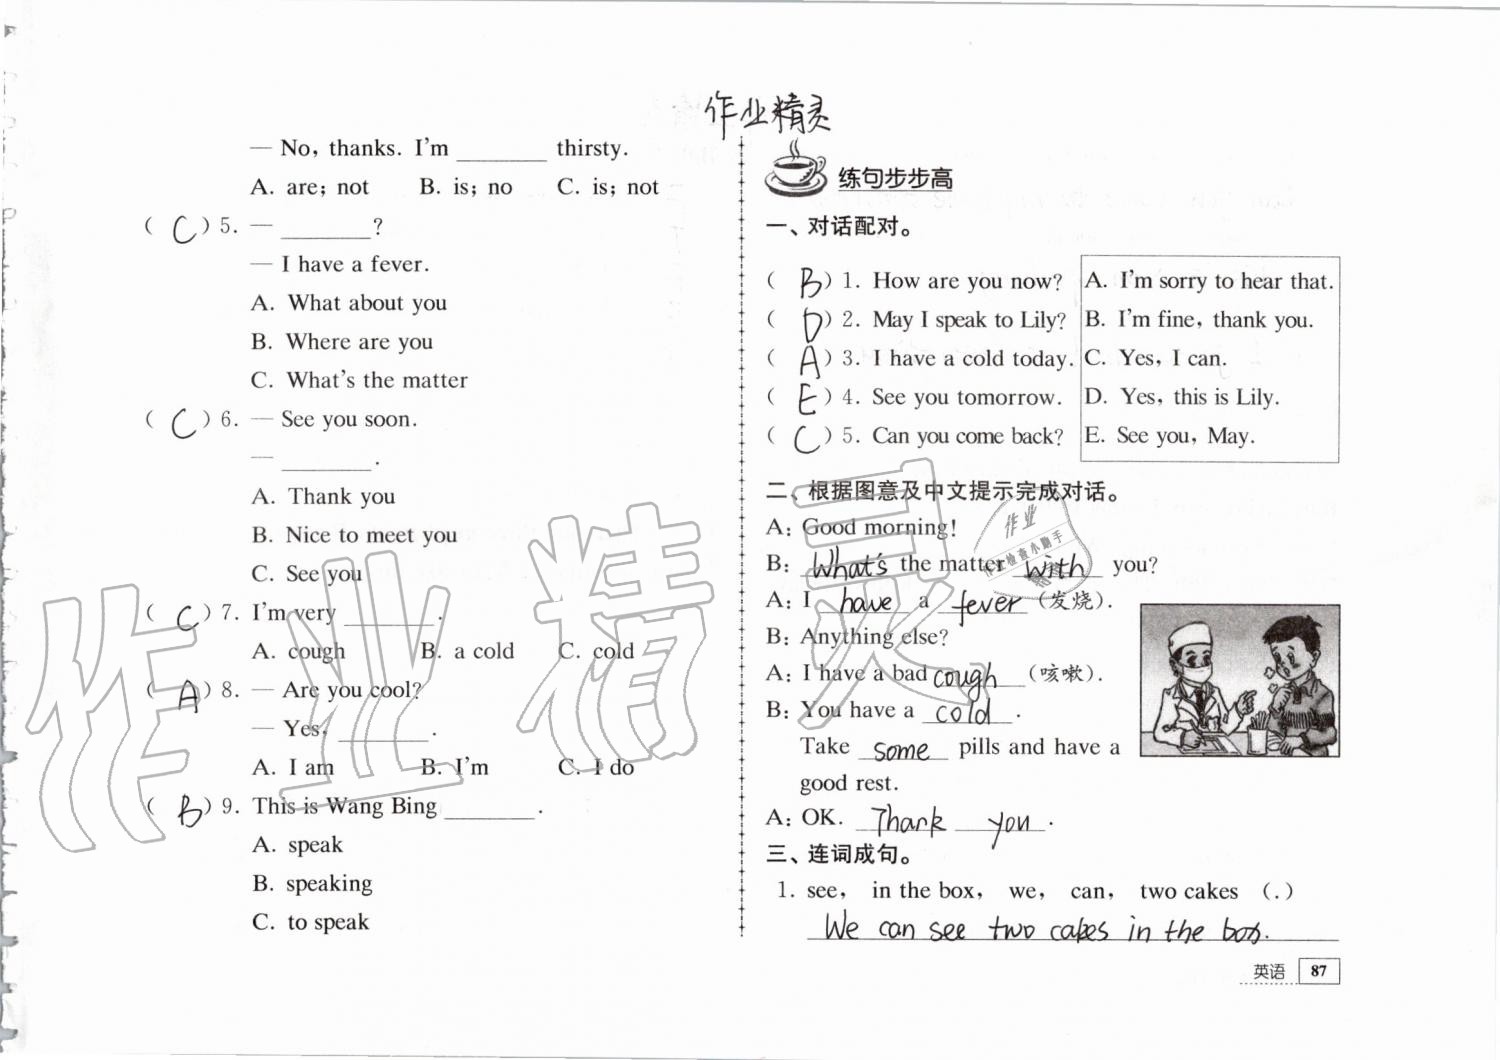 作业精灵
— No, thanks. I'm ________ thirsty.
A. are; not B. is; no C. is; not
( C ) 5. — ________?
— I have a fever.
A. What about you
B. Where are you
C. What's the matter
( C ) 6. — See you soon.
— ________.
A. Thank you
B. Nice to meet you
C. See you
( C ) 7. I'm very ________.
A. cough B. a cold C. cold
( A ) 8. — Are you cool?
— Yes, ________.
A. I am B. I'm C. I do
( B ) 9. This is Wang Bing ________.
A. speak
B. speaking
C. to speak
练句步步高
一、对话配对。
( B ) 1. How are you now? A. I'm sorry to hear that.
( D ) 2. May I speak to Lily? B. I'm fine, thank you.
( A ) 3. I have a cold today. C. Yes, I can.
( E ) 4. See you tomorrow. D. Yes, this is Lily.
( C ) 5. Can you come back? E. See you, May.
二、根据图意及中文提示完成对话。
A: Good morning!
B: What's the matter with you?
A: I have a fever (发烧).
B: Anything else?
A: I have a bad cough (咳嗽).
B: You have a cold.
Take some pills and have a
good rest.
A: OK. Thank you.
三、连词成句。
1. see, in the box, we, can, two cakes (.)
We can see two cakes in the box.
英语 87
作业精灵
作业